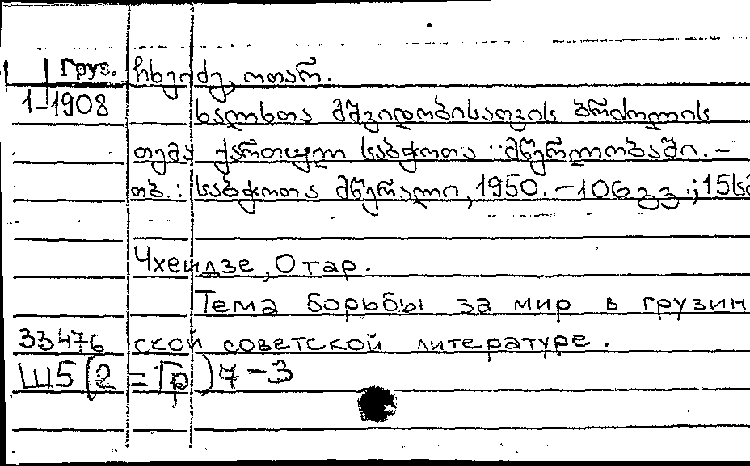 Груз. ჩხეიძე, ოთარ.
1-1908 ხალხთა მშვიდობისათვის ბრძოლის
თემა ქართულ საბჭოთა მწერლობაში. –
თბ.: საბჭოთა მწერალი, 1950. – 106 გვ ; 15სმ
Чхеидзе, Отар.
Тема борьбы за мир в грузин
33476 ской советской литературе.
Ш5(2=Гр)7-3